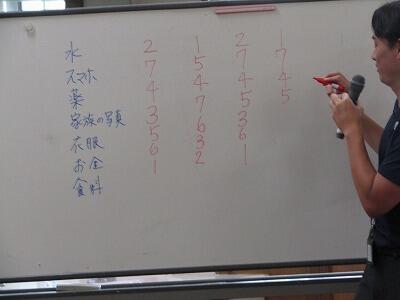 水 2 1 2 1
スマホ 7 5 7 7
薬 4 4 4 4
家族の写真 3 7 5 5
衣服 5 6 3
お金 6 3 6
食料 1 2 1